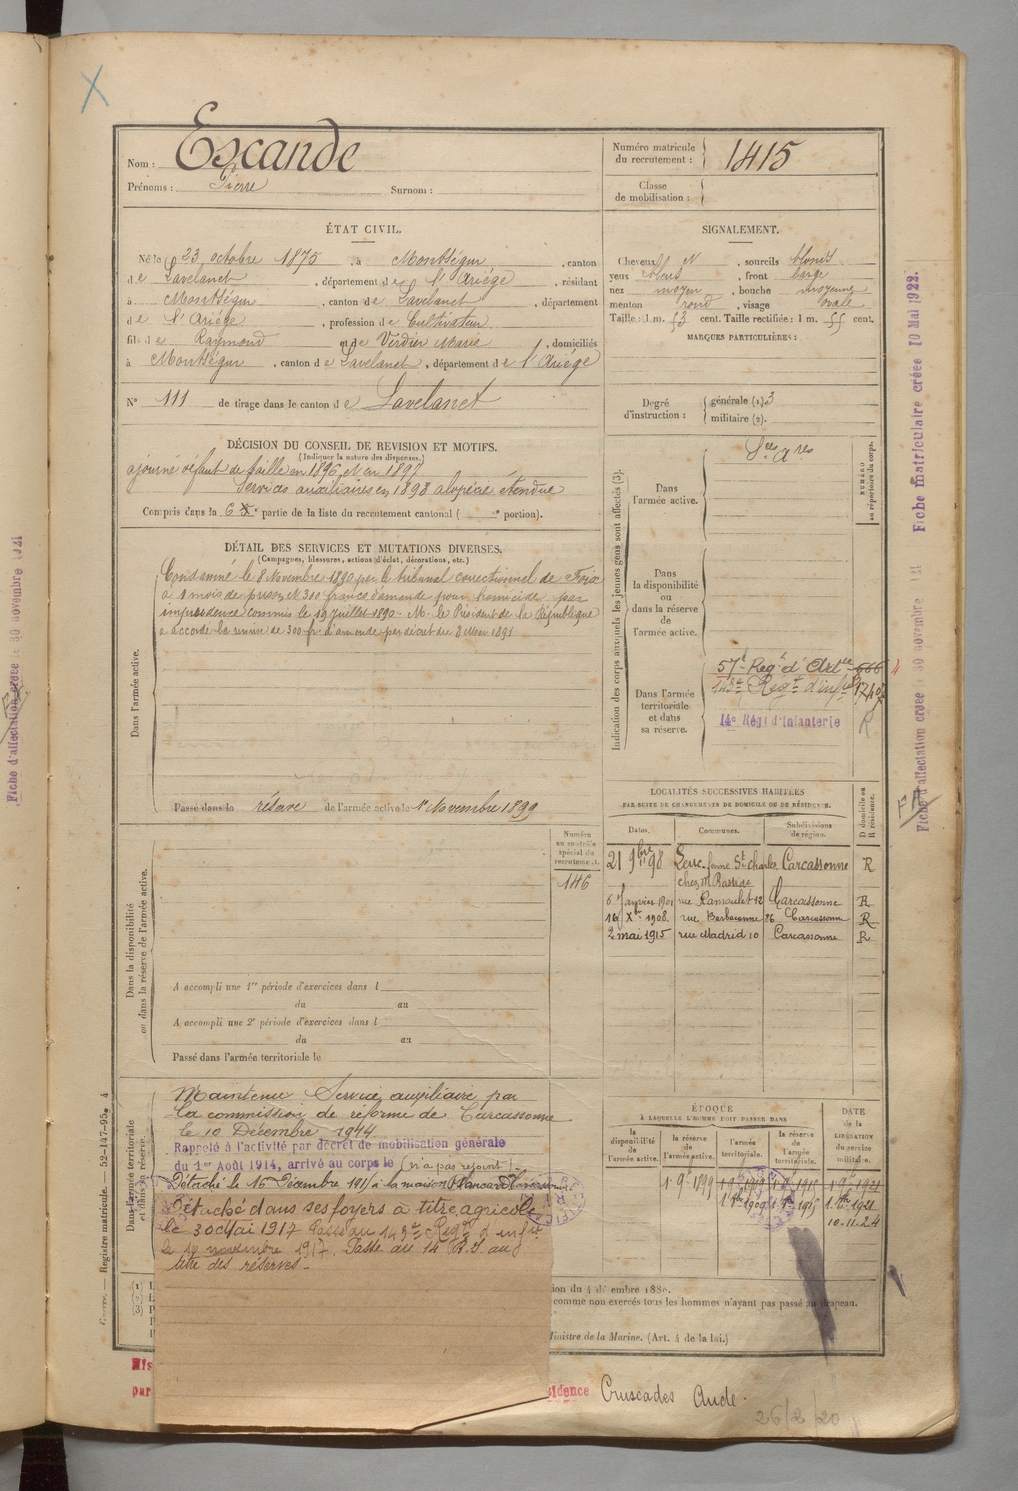 Nom : Escande
Prénoms : Pierre Surnom :
Numéro matricule
du recrutement : 1415
Classe
de mobilisation :
ÉTAT CIVIL.
Né le 23 octobre 1875, à Montségur, canton
de Lavelanet, département de l'Ariège, résidant
à Montségur, canton de Lavelanet, département
de l'Ariège, profession de Cultivateur
fils de Raymond et de Verdier Marie, domiciliés
à Montségur, canton de Lavelanet, département de l'Ariège
N° 111 de tirage dans le canton de Lavelanet
SIGNALEMENT.
Cheveux et, sourcils blonds
yeux bleus, front large
nez moyen, bouche moyenne
menton rond, visage ovale
Taille : 1 m. 53 cent. Taille rectifiée : 1 m. 55 cent.
MARQUES PARTICULIÈRES :
Degré
d'instruction :
générale (1) 3
militaire (2).
DÉCISION DU CONSEIL DE REVISION ET MOTIFS.
(Indiquer la nature des dispenses.)
ajourné défaut de taille en 1896 et en 1897
Services auxiliaires en 1898 alopécie étendue
Compris dans la 6e partie de la liste du recrutement cantonal ( e portion).
DÉTAIL DES SERVICES ET MUTATIONS DIVERSES.
(Campagnes, blessures, actions d'éclat, décorations, etc.)
Dans l'armée active.
Condamné le 8 Novembre 1890 par le tribunal correctionnel de Foix
à 1 mois de prison et 300 francs d'amende pour homicide par
imprudence commis le 19 juillet 1890. M. le Président de la République
a accordé la remise de 300 fr d'amende par décret du 8 Mars 1891
Passé dans la réserve de l'armée active le 1er Novembre 1899
Indication des corps auxquels les jeunes gens sont affectés (3).
NUMÉRO
au répertoire du corps.
Dans
l'armée active.
Ses ares
Dans
la disponibilité
ou
dans la réserve
de
l'armée active.
Dans l'armée
territoriale
et dans
sa réserve.
57e Regt d'Artie 666
143e Regt d'infie
14e Régt d'Infanterie R
LOCALITÉS SUCCESSIVES HABITÉES
PAR SUITE DE CHANGEMENTS DE DOMICILE OU DE RÉSIDENCE.
Dates. Communes. Subdivisions
de région.
D domicile ou
R résidence.
21 9bre 98 Leuc ferme St charles Carcassonne R
chez M
6 Janvier 1901 rue Ramoulet 12 Carcassonne R
16 Xe 1908. rue Barbacanne 86 Carcassonne R
2 mai 1915 rue Madrid 10 Carcassonne R
Dans la disponibilité
ou dans la réserve de l'armée active.
Numéro
au contrôle
spécial du
recrutement.
146
A accompli une 1re période d'exercices dans l
du au
A accompli une 2e période d'exercices dans l
du au
Passé dans l'armée territoriale le
Dans l'armée territoriale
et dans sa réserve.
Maintenu Service auxiliaire par
la commission de réforme de Carcassonne
le 10 Décembre 1914
Rappelé à l'activité par décret de mobilisation générale
du 1er Août 1914, arrivé au corps le (n'a pas rejoint).
Détaché le 16 Décembre 1915 à la maison
Détaché dans ses foyers à titre agricole
le 30 Mai 1917 Passé au 143e Regt d'infie
le 19 novembre 1917. Passé au 14 R.I au
titre des réserves.
ÉPOQUE
À LAQUELLE L'HOMME DOIT PASSER DANS
la
disponibilité
de
l'armée active.
la réserve
de
l'armée active.
l'armée
territoriale.
la réserve
de l'armée
territoriale.
DATE
de la
LIBÉRATION
du service
militaire.
1er 9e 1899 1er 9e 1909 1er 9e 1915 1er 9e 1921
1er 8bre 1909 1er 8bre 1915 1er 8bre 1921
10-11-24
(1)
(2)
(3)
comme non exercés tous les hommes n'ayant pas passé au drapeau.
Ministre de la Marine. (Art. 4 de la loi.)
Mis
par
sidence Cruscades Aude.
26/2/20
Guerre. — Registre matricule. — 52-147-95. 4
Fiche d'affectation créée le 30 novembre 1921
Fiche matriculaire créée 10 Mai 1922.
Fiche d'affectation créée le 30 novembre 1921